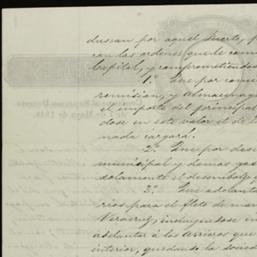 dusean por aquel Puerto, p
con las ordenes que le com
Hospital, y comprometiendos
1.º Que por comi
remision, y almacenage
el importe del principal
dose en este valor el de
nada cargará.
2.º Que por dese
municipal y demas gas
solamente el desembolso
3.º Que adelante
rios para el flete de mar
Veracruz, incluyendose en
adelantar á los arrieros que
interior, quedando la socied